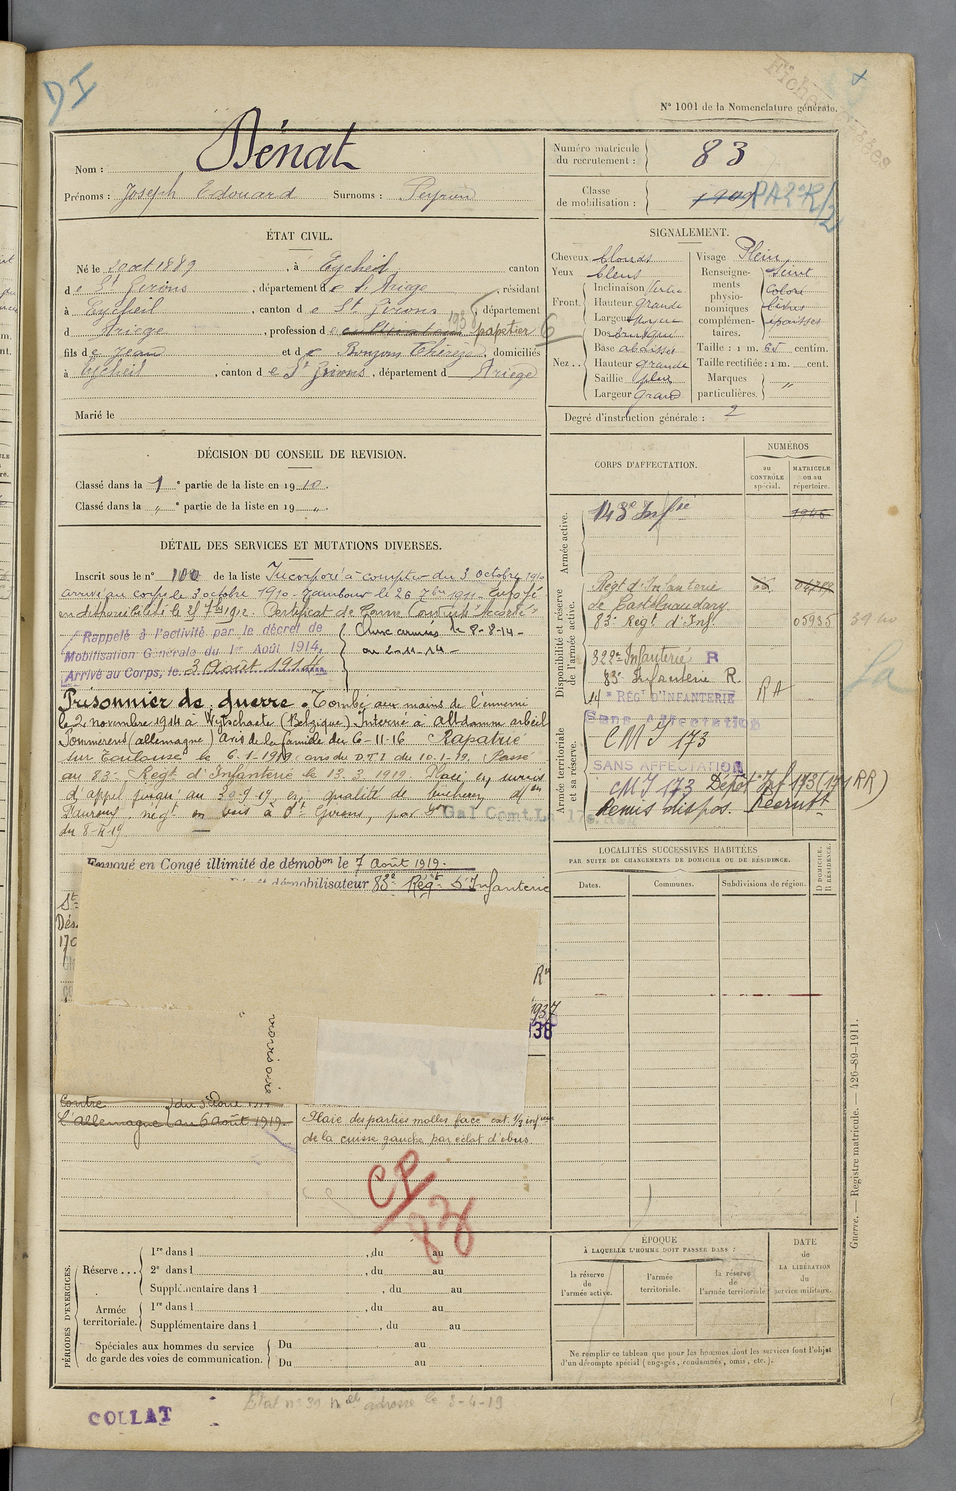 DI
N° 1001 de la Nomenclature générale.
Nom : Dénat
Prénoms : Joseph Edouard Surnoms : Peyrou
Numéro matricule du recrutement : 83
Classe de mobilisation : 1909 PA2°R/2
ÉTAT CIVIL.
Né le oct 1889, à Eycheil canton
de St Girons, département de l'Ariège, résidant
à Eycheil, canton de St Girons, département
d Ariège, profession de cultivateur papetier
fils de Jean et de Bonzom Thérèze, domiciliés
à Eycheil, canton de St Girons, département d Ariège
Marié le
SIGNALEMENT.
Cheveux blonds
Yeux bleus
Front. Inclinaison
Hauteur grande
Largeur
Nez.. Dos
Base abaissée
Hauteur grande
Saillie
Largeur grand
Visage Plein
Renseignements physionomiques complémentaires. teint
coloré
lèvres
épaisses
Taille : 1 m. 65 centim.
Taille rectifiée : 1 m. cent.
Marques particulières. "
Degré d'instruction générale : 2
DÉCISION DU CONSEIL DE REVISION.
Classé dans la 1e partie de la liste en 1910.
Classé dans la " e partie de la liste en 19 ".
DÉTAIL DES SERVICES ET MUTATIONS DIVERSES.
Inscrit sous le n° 100 de la liste Incorporé à compter du 3 octobre 1910
arrivé au corps le 3 octobre 1910. Tambour le 26 7bre 1911. Envoyé
en disponibilité le 25 7bre 1912. Certificat de bonne conduite "Accordé"
Rappelé à l'activité par le décret de
Mobilisation Générale du 1er Août 1914,
Arrivé au Corps, le 3 Août 1914
aux armées le 8-8-14-
au 2-11-14-
Prisonnier de guerre. Tombé aux mains de l'ennemi
le 2 novembre 1914 à Wytschaete (Belgique) Interné à Altdamm
Pommerens (allemagne) avis de la famille du 6-11-16 Rapatrié
sur Toulouse le 6-1-1919, avis du D.T.I du 10-1-19. Passé
au 83e Régt d'Infanterie le 13.3.1919. Placé en sursis
d'appel jusqu'au 30-9-19 en qualité de bûcheron
Laurens, négt en bois à St Girons, par
Gal Comt. La 17e Rég
du 8-4-19
Envoyé en Congé illimité de démobon le 7 Août 1919.
démobilisateur 83e Régt d'Infanterie
1937
138
Contre
l'Allemagne
au 6 Août 1919
Plaie des parties molles face ext. 1/3 infeur
de la cuisse gauche par éclat d'obus
CP
836
CORPS D'AFFECTATION.
NUMÉROS
au CONTRÔLE spécial.
MATRICULE ou au répertoire.
Armée active.
143e Infie
Disponibilité et réserve de l'armée active.
Régt d'Infanterie
de Castelnaudary
83e Régt d'Inf. 05935
322e Infanterie R
83e Infanterie R.
14e RÉGt D'INFANTERIE RA
Sans Affectation
Armée territoriale et sa réserve.
CMI 173
SANS AFFECTATION
CMI 173 Dépôt Inf 173 (171 RR)
Remis dispos. Recrutt
LOCALITÉS SUCCESSIVES HABITÉES
PAR SUITE DE CHANGEMENTS DE DOMICILE OU DE RÉSIDENCE.
Dates.
Communes.
Subdivisions de région.
D DOMICILE.
R RÉSIDENCE.
Guerre. — Registre matricule. — 426-89-1911.
PÉRIODES D'EXERCICES.
Réserve...
1re dans l , du au
2e dans l , du au
Supplémentaire dans l , du au
Armée territoriale.
1re dans l , du au
Supplémentaire dans l , du au
Spéciales aux hommes du service de garde des voies de communication.
Du au
Du au
ÉPOQUE
À LAQUELLE L'HOMME DOIT PASSER DANS :
la réserve de l'armée active.
l'armée territoriale.
la réserve de l'armée territoriale
DATE de LA LIBÉRATION du service militaire.
Ne remplir ce tableau que pour les hommes dont les services font l'objet
d'un décompte spécial (engagés, condamnés, omis, etc.).
COLLAT